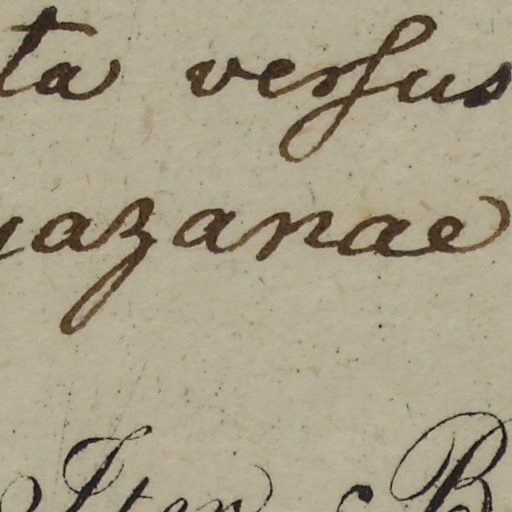 ta versus
azanae
Iter B